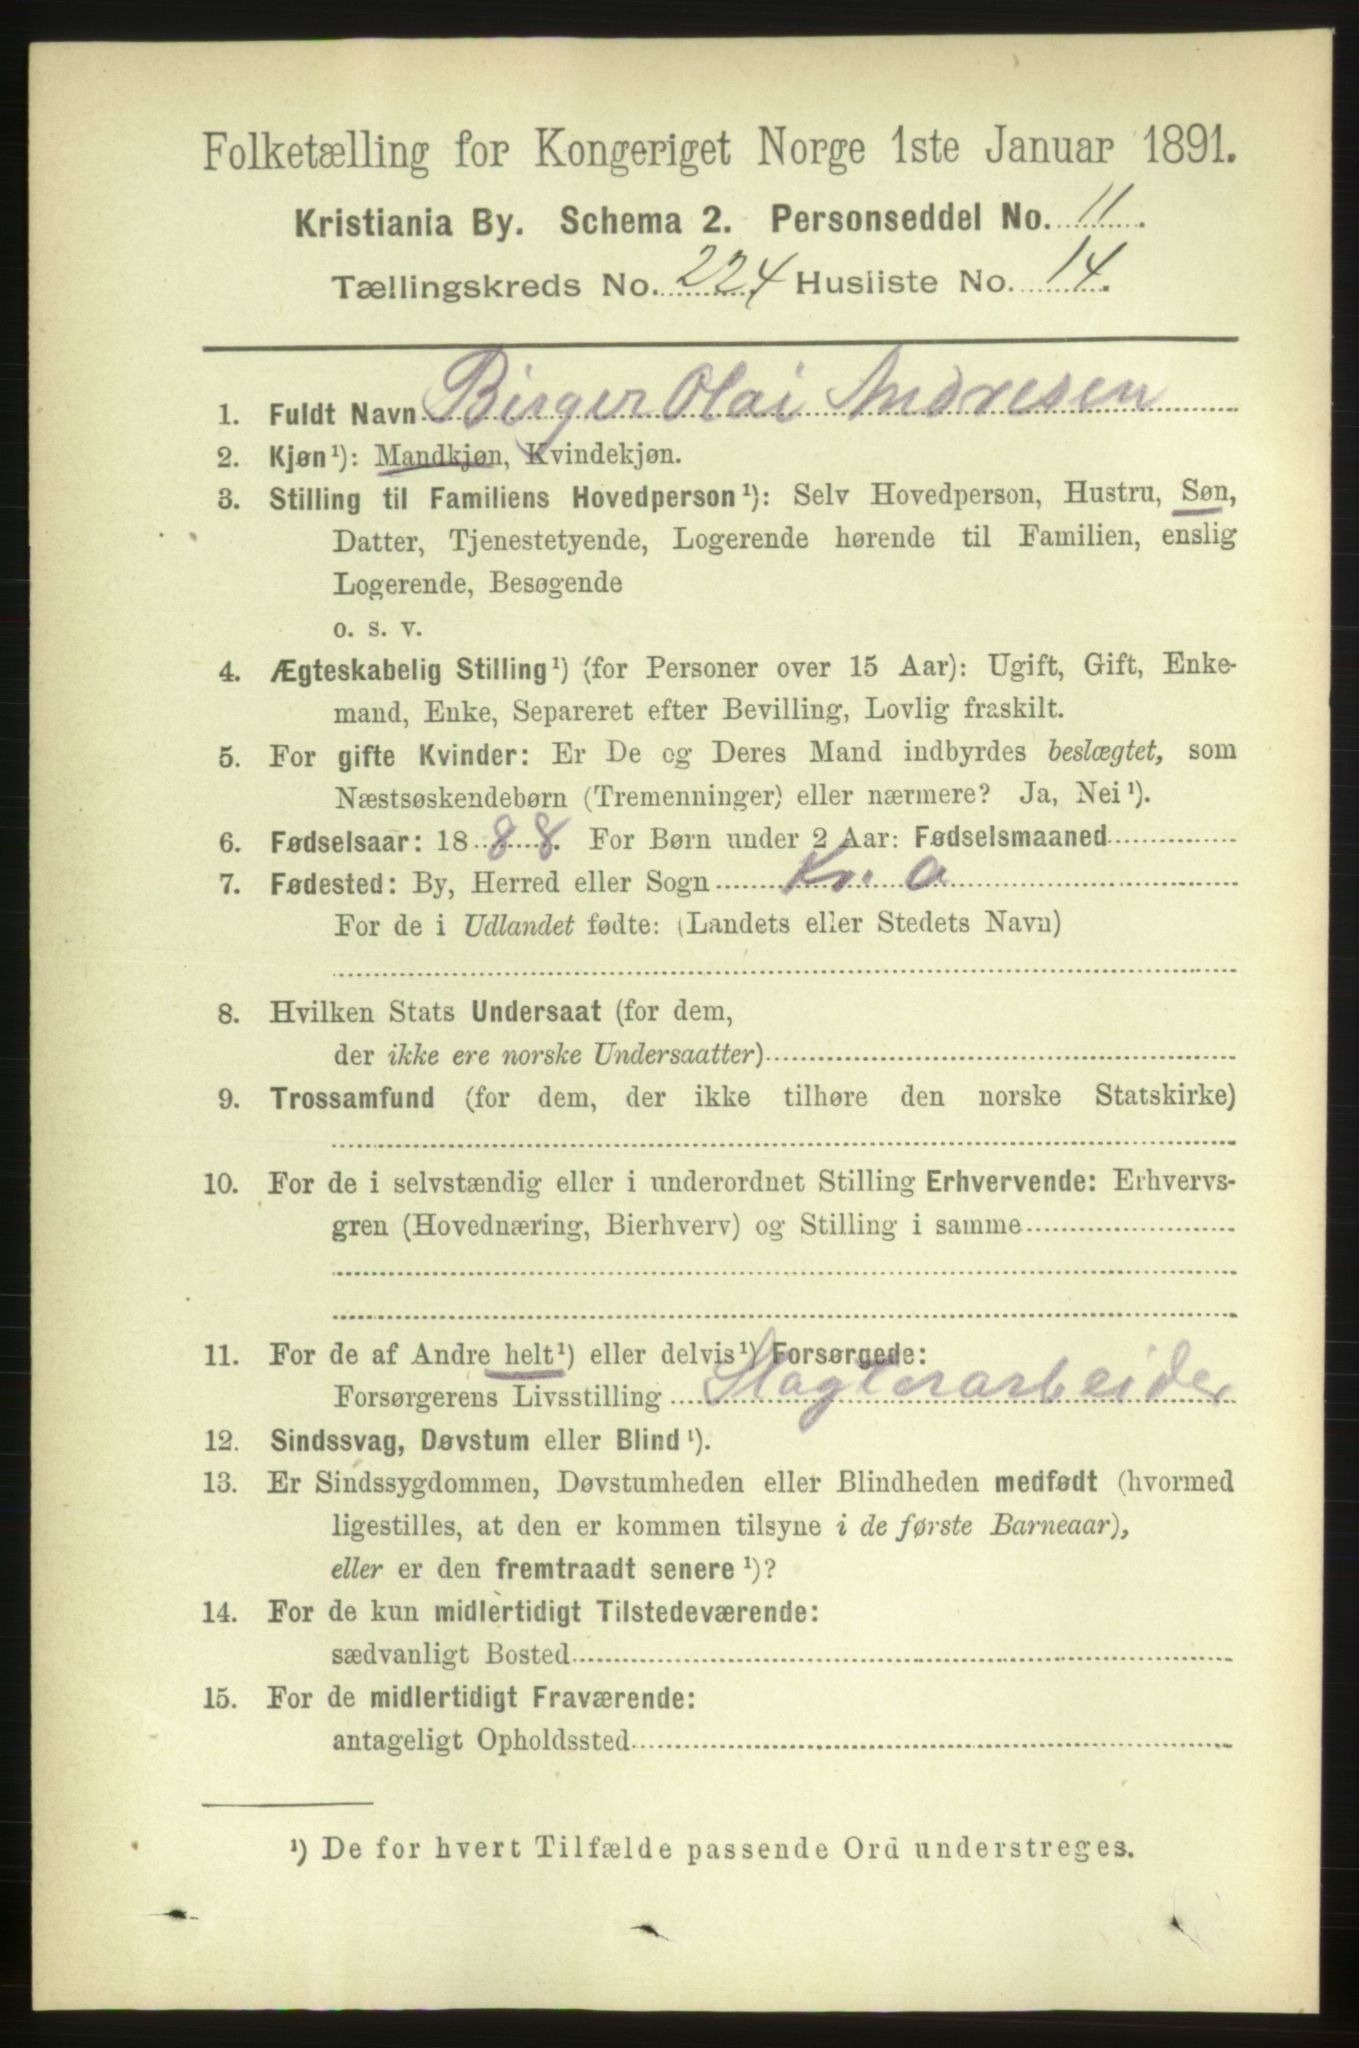 Folketælling for Kongeriget Norge 1ste Januar 1891.
Kristiania By. Schema 2. Personseddel No. 11.
Tællingskreds No. 224 Husliste No. 14.
1. Fuldt Navn Birger Olai Andresen
2. Kjøn¹): Mandkjøn, Kvindekjøn.
3. Stilling til Familiens Hovedperson¹): Selv Hovedperson, Hustru, Søn,
Datter, Tjenestetyende, Logerende hørende til Familien, enslig
Logerende, Besøgende
o. s. v.
4. Ægteskabelig Stilling¹) (for Personer over 15 Aar): Ugift, Gift, Enke-
mand, Enke, Separeret efter Bevilling, Lovlig fraskilt.
5. For gifte Kvinder: Er De og Deres Mand indbyrdes beslægtet, som
Næstsøskendebørn (Tremenninger) eller nærmere? Ja, Nei¹).
6. Fødselsaar: 1888. For Børn under 2 Aar: Fødselsmaaned
7. Fødested: By, Herred eller Sogn Kr. a
For de i Udlandet fødte: (Landets eller Stedets Navn)
8. Hvilken Stats Undersaat (for dem,
der ikke ere norske Undersaatter)
9. Trossamfund (for dem, der ikke tilhøre den norske Statskirke)
10. For de i selvstændig eller i underordnet Stilling Erhvervende: Erhvervs-
gren (Hovednæring, Bierhverv) og Stilling i samme
11. For de af Andre helt¹) eller delvis¹) Forsørgede:
Forsørgerens Livsstilling Slagterarbeider
12. Sindssvag, Døvstum eller Blind¹).
13. Er Sindssygdommen, Døvstumheden eller Blindheden medfødt (hvormed
ligestilles, at den er kommen tilsyne i de første Barneaar),
eller er den fremtraadt senere¹)?
14. For de kun midlertidigt Tilstedeværende:
sædvanligt Bosted
15. For de midlertidigt Fraværende:
antageligt Opholdssted
¹) De for hvert Tilfælde passende Ord understreges.